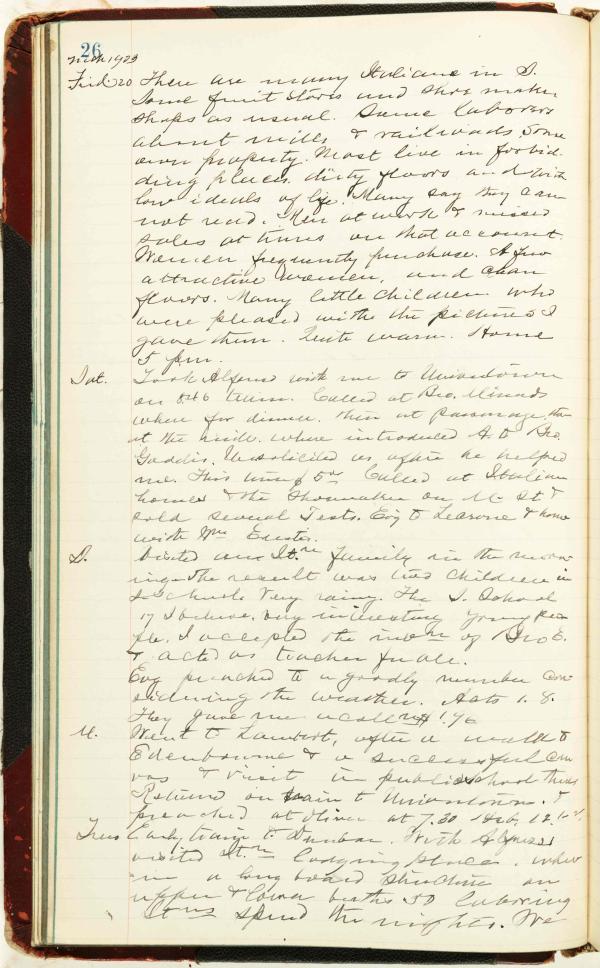 26
Mch 1903
Frid 20 There are many Italians in S.
Some fruit stores and shoe maker
shops as usual. Some laborers
about mills & railroads. Some
own property. Most live in forbid-
ding places, dirty floors and with
low ideals of life. Many say they can
not read. Men at work & missed
sales at times on that account.
Women frequently purchase. A few
attractive women, and clean
floors. Many little children who
were pleased with the pictures I
gave them. Quite warm. Home
5 pm.
Sat. Took Alfonso with me to Uniontown
on 846 train. Called at Bro.
where for dinner. Then at parsonage, then
at the mill. where introduced A. to Bro.
Gaddis. He solicited us after he helped
me. This time 5 Called at Italian
homes & the Shoemaker on M. St &
sold several Tests. Eng to Leasone & home
with
S. Visited one It.n family in the morn-
ing - The result was two children in
S. School. Very rainy. The S. School
17 I believe, very interesting young peo-
ple. I accepted the of Bro E.
& acted as teacher for all.
Eng preached to a goodly number con-
sidering the weather. Acts 1. 8.
They gave me a coll 1.76
M. Went to Lambert, after a walk to
Edenbourne & a successful can-
vas & visit in public school there
Return on train to Uniontown. &
preached at Oliver at 7.30 Heb. 12.1-2.
Tues Early train to Dunbar. With Alfonso
visited It.n lodging place. where
in a long board structure on
upper & lower berths 50 laboring
Itns spend the nights. We